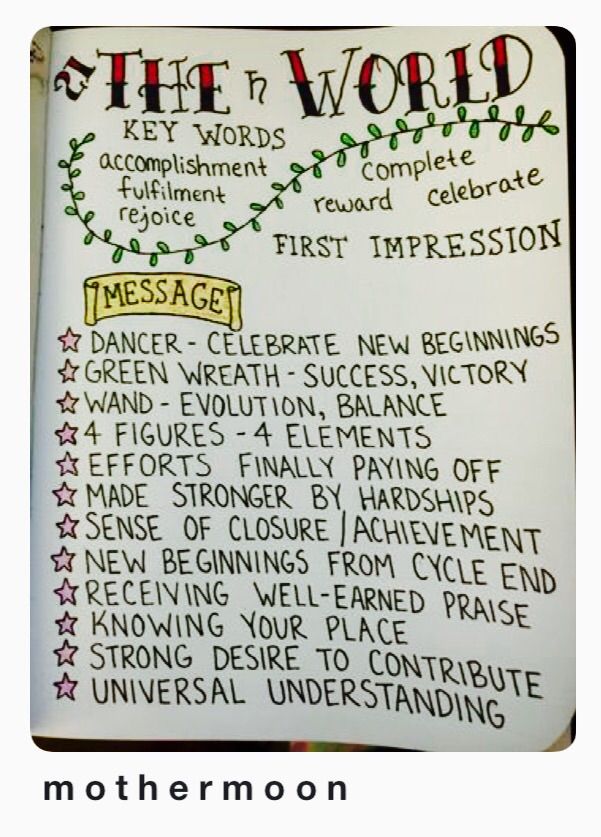 21 THE ♄ WORLD
KEY WORDS
accomplishment
fulfilment
rejoice
complete
reward celebrate
FIRST IMPRESSION
MESSAGE
DANCER - CELEBRATE NEW BEGINNINGS
GREEN WREATH - SUCCESS, VICTORY
WAND - EVOLUTION, BALANCE
4 FIGURES - 4 ELEMENTS
EFFORTS FINALLY PAYING OFF
MADE STRONGER BY HARDSHIPS
SENSE OF CLOSURE / ACHIEVEMENT
NEW BEGINNINGS FROM CYCLE END
RECEIVING WELL-EARNED PRAISE
KNOWING YOUR PLACE
STRONG DESIRE TO CONTRIBUTE
UNIVERSAL UNDERSTANDING
mothermoon